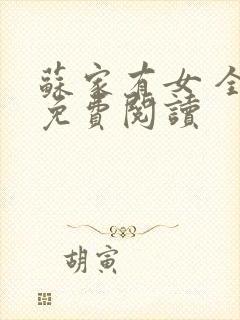 蘇家有女 全
免費閱讀
胡寅